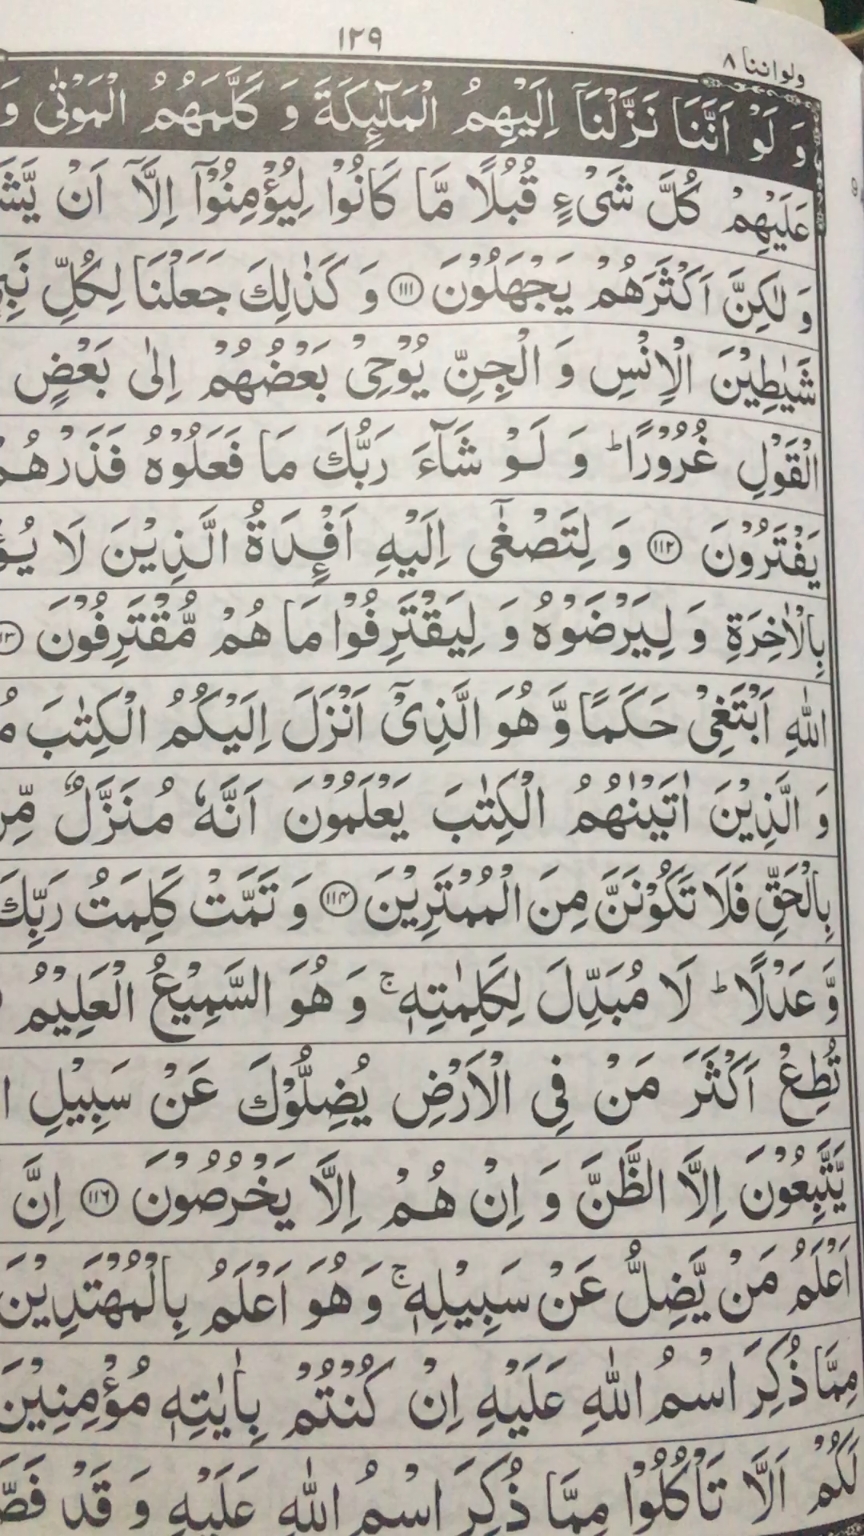 ١٢٩
ولواننا ٨
وَ لَوْ اَنَّنَا نَزَّلْنَاۤ اِلَيْهِمُ الْمَلٰٓئِكَةَ وَ كَلَّمَهُمُ الْمَوْتٰى وَ
عَلَيْهِمْ كُلَّ شَیْءٍ قُبُلًا مَّا كَانُوْا لِيُؤْمِنُوْۤا اِلَّاۤ اَنْ يَّشَ
وَ لٰكِنَّ اَكْثَرَهُمْ يَجْهَلُوْنَ ١١١ وَ كَذٰلِكَ جَعَلْنَا لِكُلِّ نَبِ
شَيٰطِيْنَ الْاِنْسِ وَ الْجِنِّ يُوْحِیْ بَعْضُهُمْ اِلٰى بَعْضٍ
الْقَوْلِ غُرُوْرًا ؕ وَ لَوْ شَآءَ رَبُّكَ مَا فَعَلُوْهُ فَذَرْهُمْ
يَفْتَرُوْنَ ١١٢ وَ لِتَصْغٰۤى اِلَيْهِ اَفْـِٕدَةُ الَّذِيْنَ لَا يُؤ
بِالْاٰخِرَةِ وَ لِيَرْضَوْهُ وَ لِيَقْتَرِفُوْا مَا هُمْ مُّقْتَرِفُوْنَ
اللّٰهِ اَبْتَغِیْ حَكَمًا وَّ هُوَ الَّذِیْۤ اَنْزَلَ اِلَيْكُمُ الْكِتٰبَ مُ
وَ الَّذِيْنَ اٰتَيْنٰهُمُ الْكِتٰبَ يَعْلَمُوْنَ اَنَّهٗ مُنَزَّلٌ مِّنْ
بِالْحَقِّ فَلَا تَكُوْنَنَّ مِنَ الْمُمْتَرِيْنَ ١١٤ وَ تَمَّتْ كَلِمَتُ رَبِّكَ
وَّ عَدْلًا ؕ لَا مُبَدِّلَ لِكَلِمٰتِهٖ ۚ وَ هُوَ السَّمِيْعُ الْعَلِيْمُ
تُطِعْ اَكْثَرَ مَنْ فِی الْاَرْضِ يُضِلُّوْكَ عَنْ سَبِيْلِ ا
يَّتَّبِعُوْنَ اِلَّا الظَّنَّ وَ اِنْ هُمْ اِلَّا يَخْرُصُوْنَ ١١٦ اِنَّ
اَعْلَمُ مَنْ يَّضِلُّ عَنْ سَبِيْلِهٖ ۚ وَ هُوَ اَعْلَمُ بِالْمُهْتَدِيْنَ
مِمَّا ذُكِرَ اسْمُ اللّٰهِ عَلَيْهِ اِنْ كُنْتُمْ بِاٰيٰتِهٖ مُؤْمِنِيْنَ
لَكُمْ اَلَّا تَاْكُلُوْا مِمَّا ذُكِرَ اسْمُ اللّٰهِ عَلَيْهِ وَ قَدْ فَصَّ